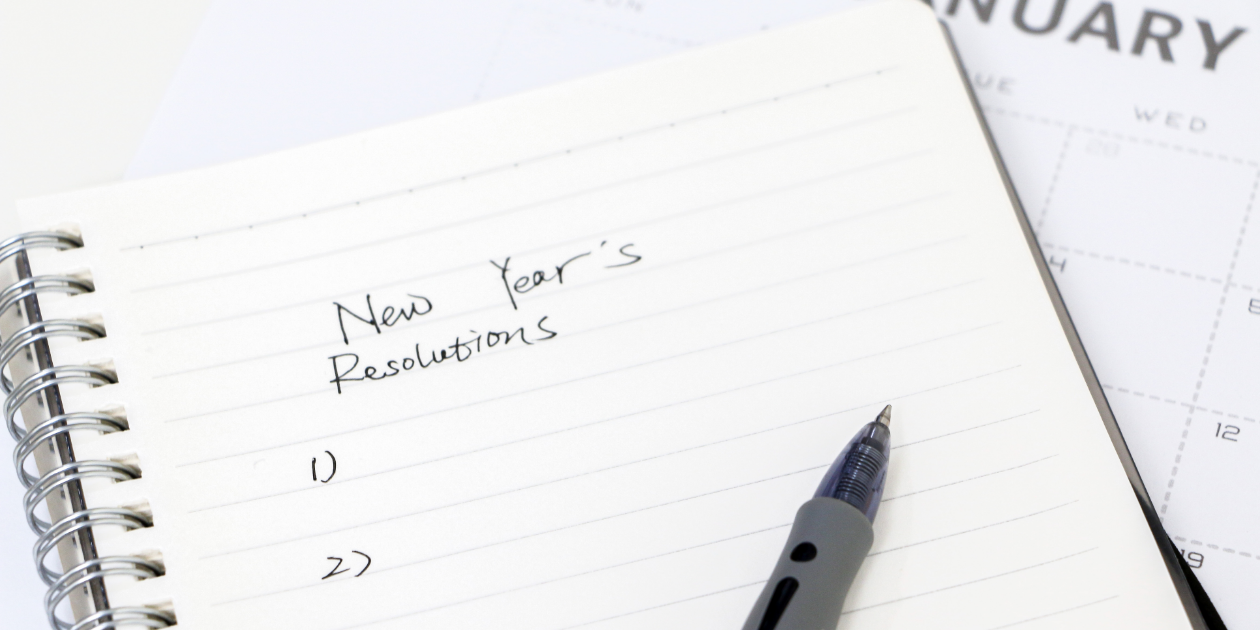 NUARY
UE
WED
28
4
5
12
19
New Year's
Resolutions
1)
2)